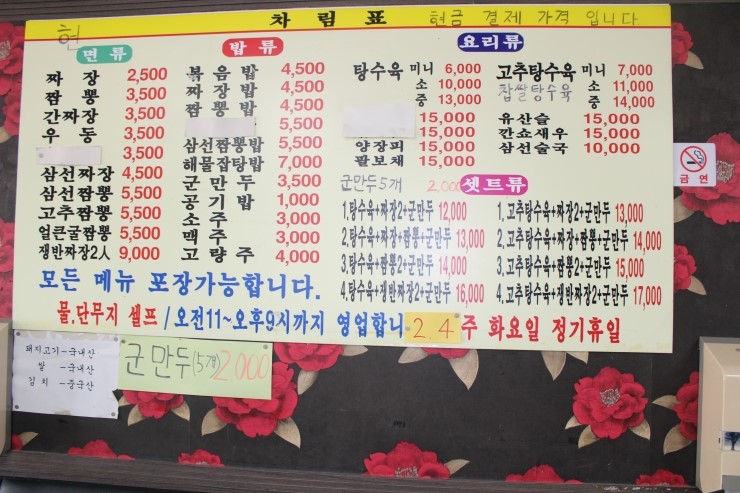 차림표 현금 결제 가격 입니다
현
면류
짜장 2,500
짬뽕 3,500
간짜장 3,500
우동 3,500
3,500
삼선짜장 4,500
삼선짬뽕 5,500
고추짬뽕 5,500
얼큰굴짬뽕 5,500
쟁반짜장2人 9,000
밥류
볶음밥 4,500
짜장밥 4,500
짬뽕밥 4,500
5,500
삼선짬뽕밥 5,500
해물잡탕밥 7,000
군만두 3,500
공기밥 1,000
소주 3,000
맥주 3,000
고량주 4,000
요리류
탕수육 미니 6,000
소 10,000
중 13,000
15,000
15,000
양장피 15,000
팔보채 15,000
고추탕수육 미니 7,000
찹쌀탕수육 소 11,000
중 14,000
유산슬 15,000
깐쇼새우 15,000
삼선술국 10,000
군만두5개 2,000
셋트류
1.탕수육+짜장2+군만두 12,000
2.탕수육+짜장+짬뽕+군만두 13,000
3.탕수육+짬뽕2+군만두 14,000
4.탕수육+쟁반짜장2+군만두 16,000
1.고추탕수육+짜장2+군만두 13,000
2.고추탕수육+짜장+짬뽕+군만두 14,000
3.고추탕수육+짬뽕2+군만두 15,000
4.고추탕수육+쟁반짜장2+군만두 17,000
모든 메뉴 포장가능합니다.
물,단무지 셀프 / 오전11~오후9시까지 영업합니 2.4주 화요일 정기휴일
금연
돼지고기-국내산
쌀 -국내산
김치 -중국산
군만두(5개) 2,000